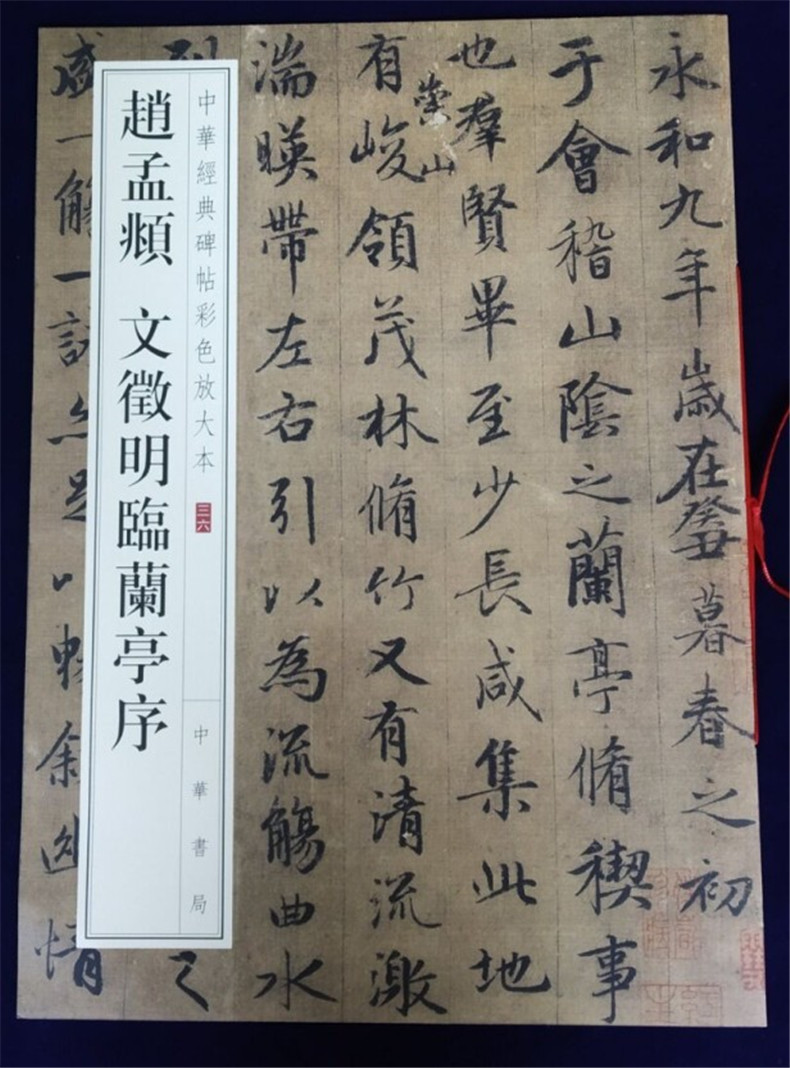 永和九年歲在癸丑暮春之初
于會稽山陰之蘭亭脩稧事
也羣賢畢至少長咸集此地
有崇山峻領茂林脩竹又有清流激
湍暎帶左右引以為流觴曲水
列
之
盛一觴一詠亦足以暢叙幽情
中華經典碑帖彩色放大本
三六
中華書局
趙孟頫 文徵明臨蘭亭序